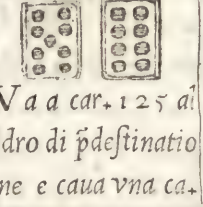 Va a car. 125 al
dro di p̄deſtinatio
ne e caua vna ca.